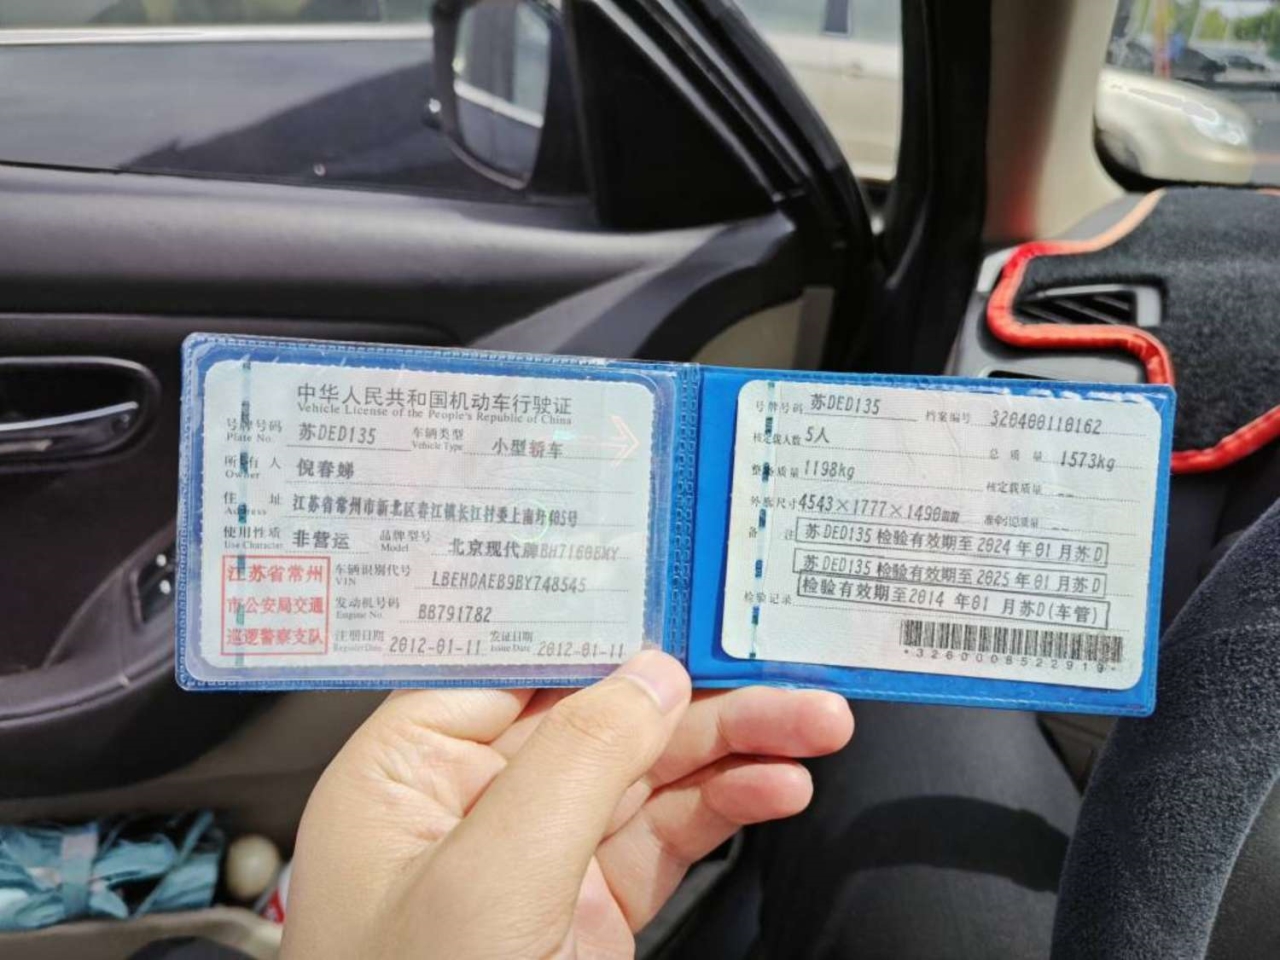 中华人民共和国机动车行驶证
Vehicle License of the People's Republic of China
号牌号码 Plate No. 苏DED135 车辆类型 Vehicle Type 小型轿车
所有人 Owner 倪春娣
住址 Address 江苏省常州市新北区春江镇长江村委上南圩405号
使用性质 Use Character 非营运 品牌型号 Model 北京现代牌
江苏省常州
市公安局交通
巡逻警察支队
车辆识别代号 VIN
发动机号码 Engine No. BB791782
注册日期 Register Date 2012-01-11 发证日期 Issue Date 2012-01-11
号牌号码 苏DED135 档案编号 320400110162
核定载人数 5人 总质量 1573kg
整备质量 1198kg 核定载质量 --
外廓尺寸 4543×1777×1490mm 准牵引总质量 --
备注 苏DED135 检验有效期至2024年01月苏D
苏DED135 检验有效期至2025年01月苏D
检验记录 检验有效期至2014年01月苏D(车管)
*3260008522919*